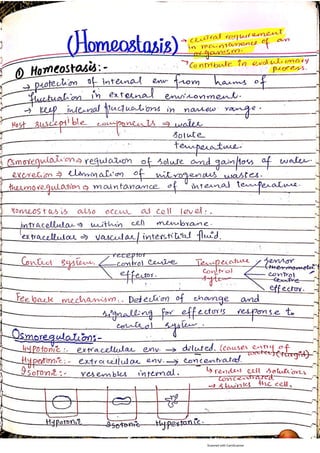 (Homeostasis) → central requirement
in maintainance of an
organism.
→ Contribute to evolutionary
process.
① Homeostasis:-
→ protection of internal env from harms of
fluctuation in external environment.
→ keep internal fluctuations in narrow range.
Most susceptible components → water
solute
temperature.
Osmoregulation → regulation of solute and gain/loss of water
excretion → elimination of nitrogenous wastes.
thermoregulation → maintanance of internal temperature.
Homeostasis also occur at cell level:.
intracellular → within cell membrane.
extracellular → vascular/interstitial fluid.
Control system. receptor control centre effector.
Temperature control system sensor (thermometer) control centre effector.
Feedback mechanism:. Detection of change and
signalling for effector's response to
control system.
Osmoregulations:-
Hypotonic:. extracellular env → diluted. (causes entry of
water) (turgid)
Hypertonic:. extracellular env. → concentrated
Isotonic:. resembles internal. ↳ renders cell solutions
concentrated
→ shrinks the cell.
Hypotonic Isotonic Hypertonic.
Scanned with CamScanner